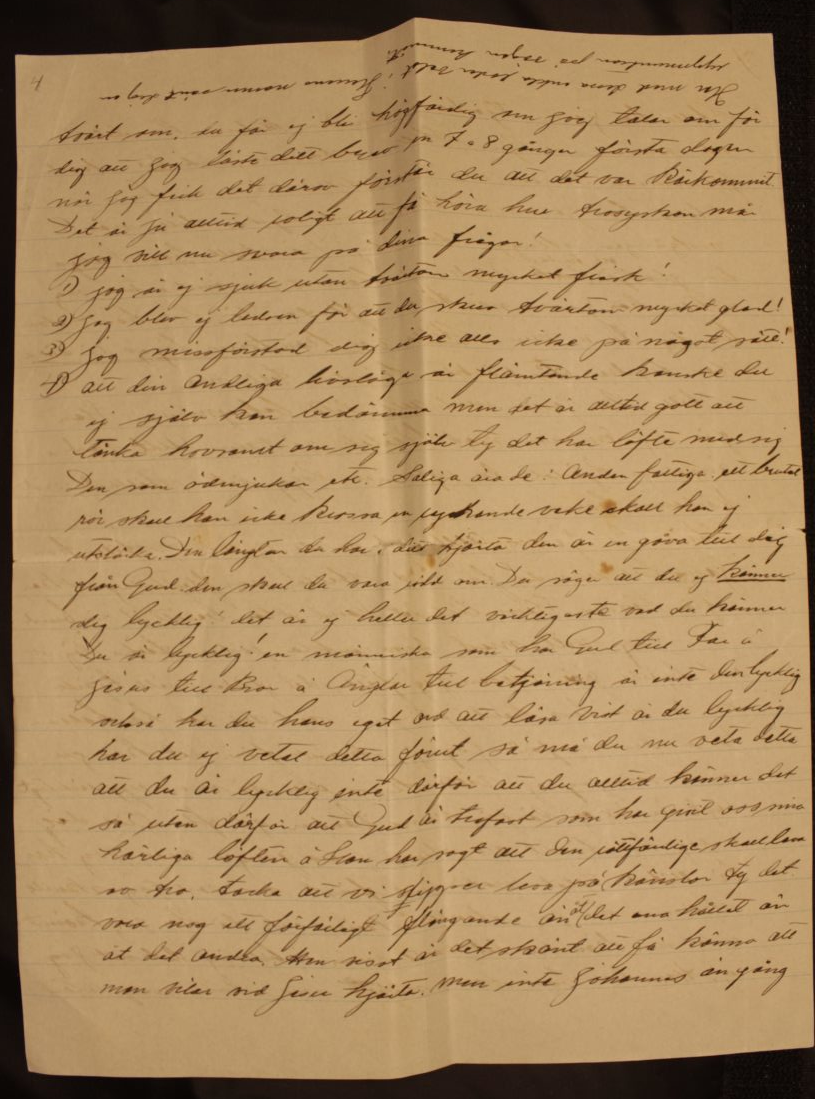 4
tvärt om. du får ej bli högfärdig om jag talar om för
dig att jag läste ditt brev 7 a 8 gånger första dagen
när jag fick det därav förstår du att det var kärkommit
Det är ju alltid roligt att få höra hur trosyskon må
jag vill nu svara på dina frågor!
1) jag är ej sjuk utan tvärtom mycket frisk!
2) jag blev ej ledsen för att du skrev tvärtom mycket glad!
3) jag missförstod dig icke alls icke på något sätt!
4) att din andliga livslåga är flämtande kanske du
ej själv kan bedömma men det är alltid gott att
tänka om sig själv ty det har löfte med sig
Den som ödmjukar etc. Saliga äro de i Anden fattiga. ett brutet
rör skall han icke krossa en rykande veke skall han ej
utsläcka. Den längtan du har i ditt hjärta den är en gåva till dig
från Gud den skall du vara rädd om. Du säger att du ej känner
dig lycklig! det är ej heller det viktigaste vad du känner
Du är lycklig! en människa som har Gud till Far å
Jesus till Bror å Änglar till betjäning är inte den lycklig
också har du hans eget ord att läsa Visst är du lycklig
har du ej vetat detta förut så må du nu veta detta
att du är lycklig inte därför att du alltid känner det
så utan därför att Gud är trofast som har givit oss sina
härliga löften å Han har sagt att den rättfärdige skall leva
av tro. tacka att vi slipper leva på känslor ty det
vore nog ett förfärligt slängande än åt det ena hållet än
åt det andra. Men visst är det skönt att få känna att
man vilar vid Jesu hjärta. men inte Johannes än gång